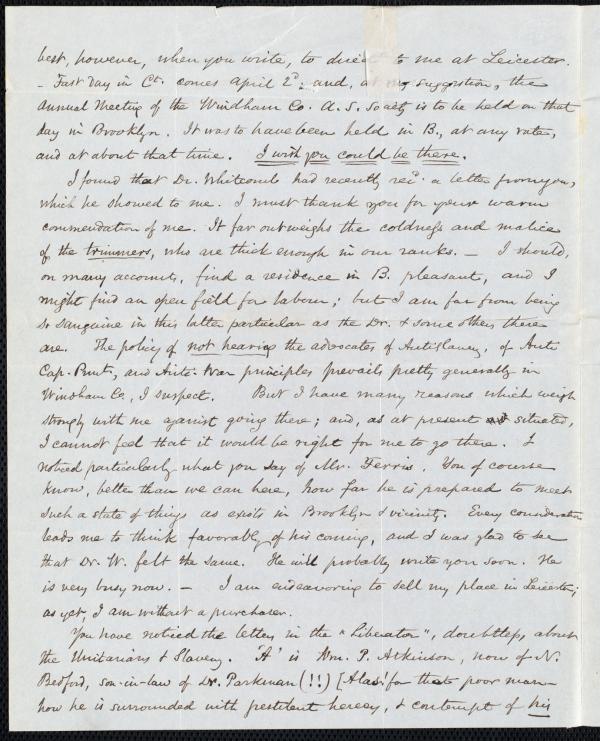 best, however, when you write, to direct to me at Leicester.
– Fast day in Ct. comes April 2d; and, at my suggestion, the
Annual Meeting of the Windham Co. A. S. Society is to be held on that
day in Brooklyn. It was to have been held in B., at any rate,
and at about that time. I wish you could be there.
I found that Dr. Whitcomb had recently recd. a letter from you,
which he showed to me. I must thank you for your warm
commendation of me. It far outweighs the coldness and malice
of the trimmers, who are thick enough in our ranks. – I should,
on many accounts, find a residence in B. pleasant, and I
might find an open field for labour; but I am far from being
so sanguine in this latter particular as the Dr. & some others there
are. The policy of not hearing the advocates of Antislavery, of Anti
Cap. Punt., and Anti-War principles prevails pretty generally in
Windham Co., I suspect. But I have many reasons which weigh
strongly with me against going there; and, as at present situated,
I cannot feel that it would be right for me to go there. I
noticed particularly what you say of Mr. Ferris. You of course
know, better than we can here, how far he is prepared to meet
such a state of things as exists in Brooklyn & vicinity. Every consideration
leads me to think favorably of his coming, and I was glad to see
that Dr. W. felt the same. He will probably write you soon. He
is very busy now. – I am endeavoring to sell my place in Leicester;
as yet, I am without a purchaser.
You have noticed the letters in the "Liberator", doubtless, about
the Unitarians & Slavery. 'A' is Wm. P. Atkinson, now of N.
Bedford, son-in-law of Dr. Parkman (!!) [Alas! for that poor man–
how he is surrounded with pestilent heresy, & contempt of his